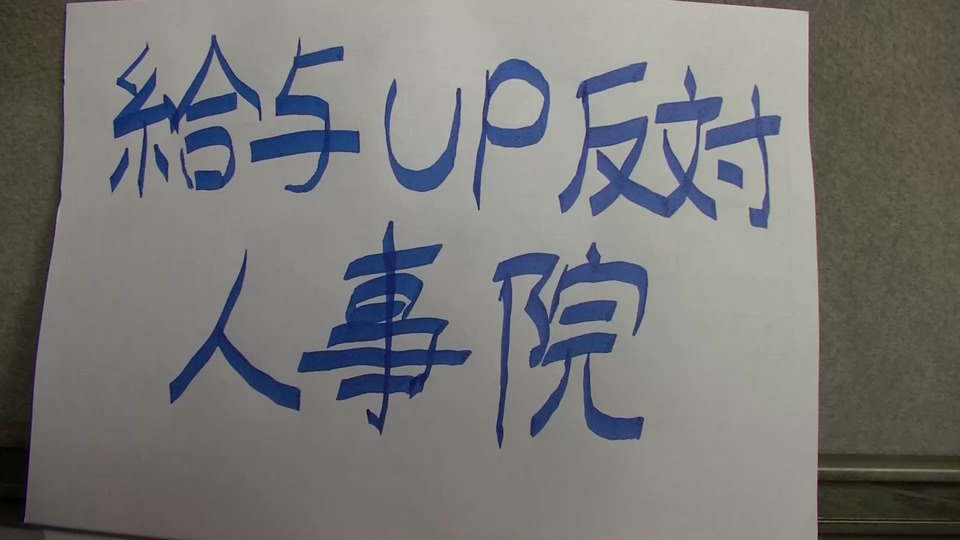 給与UP反対
人事院